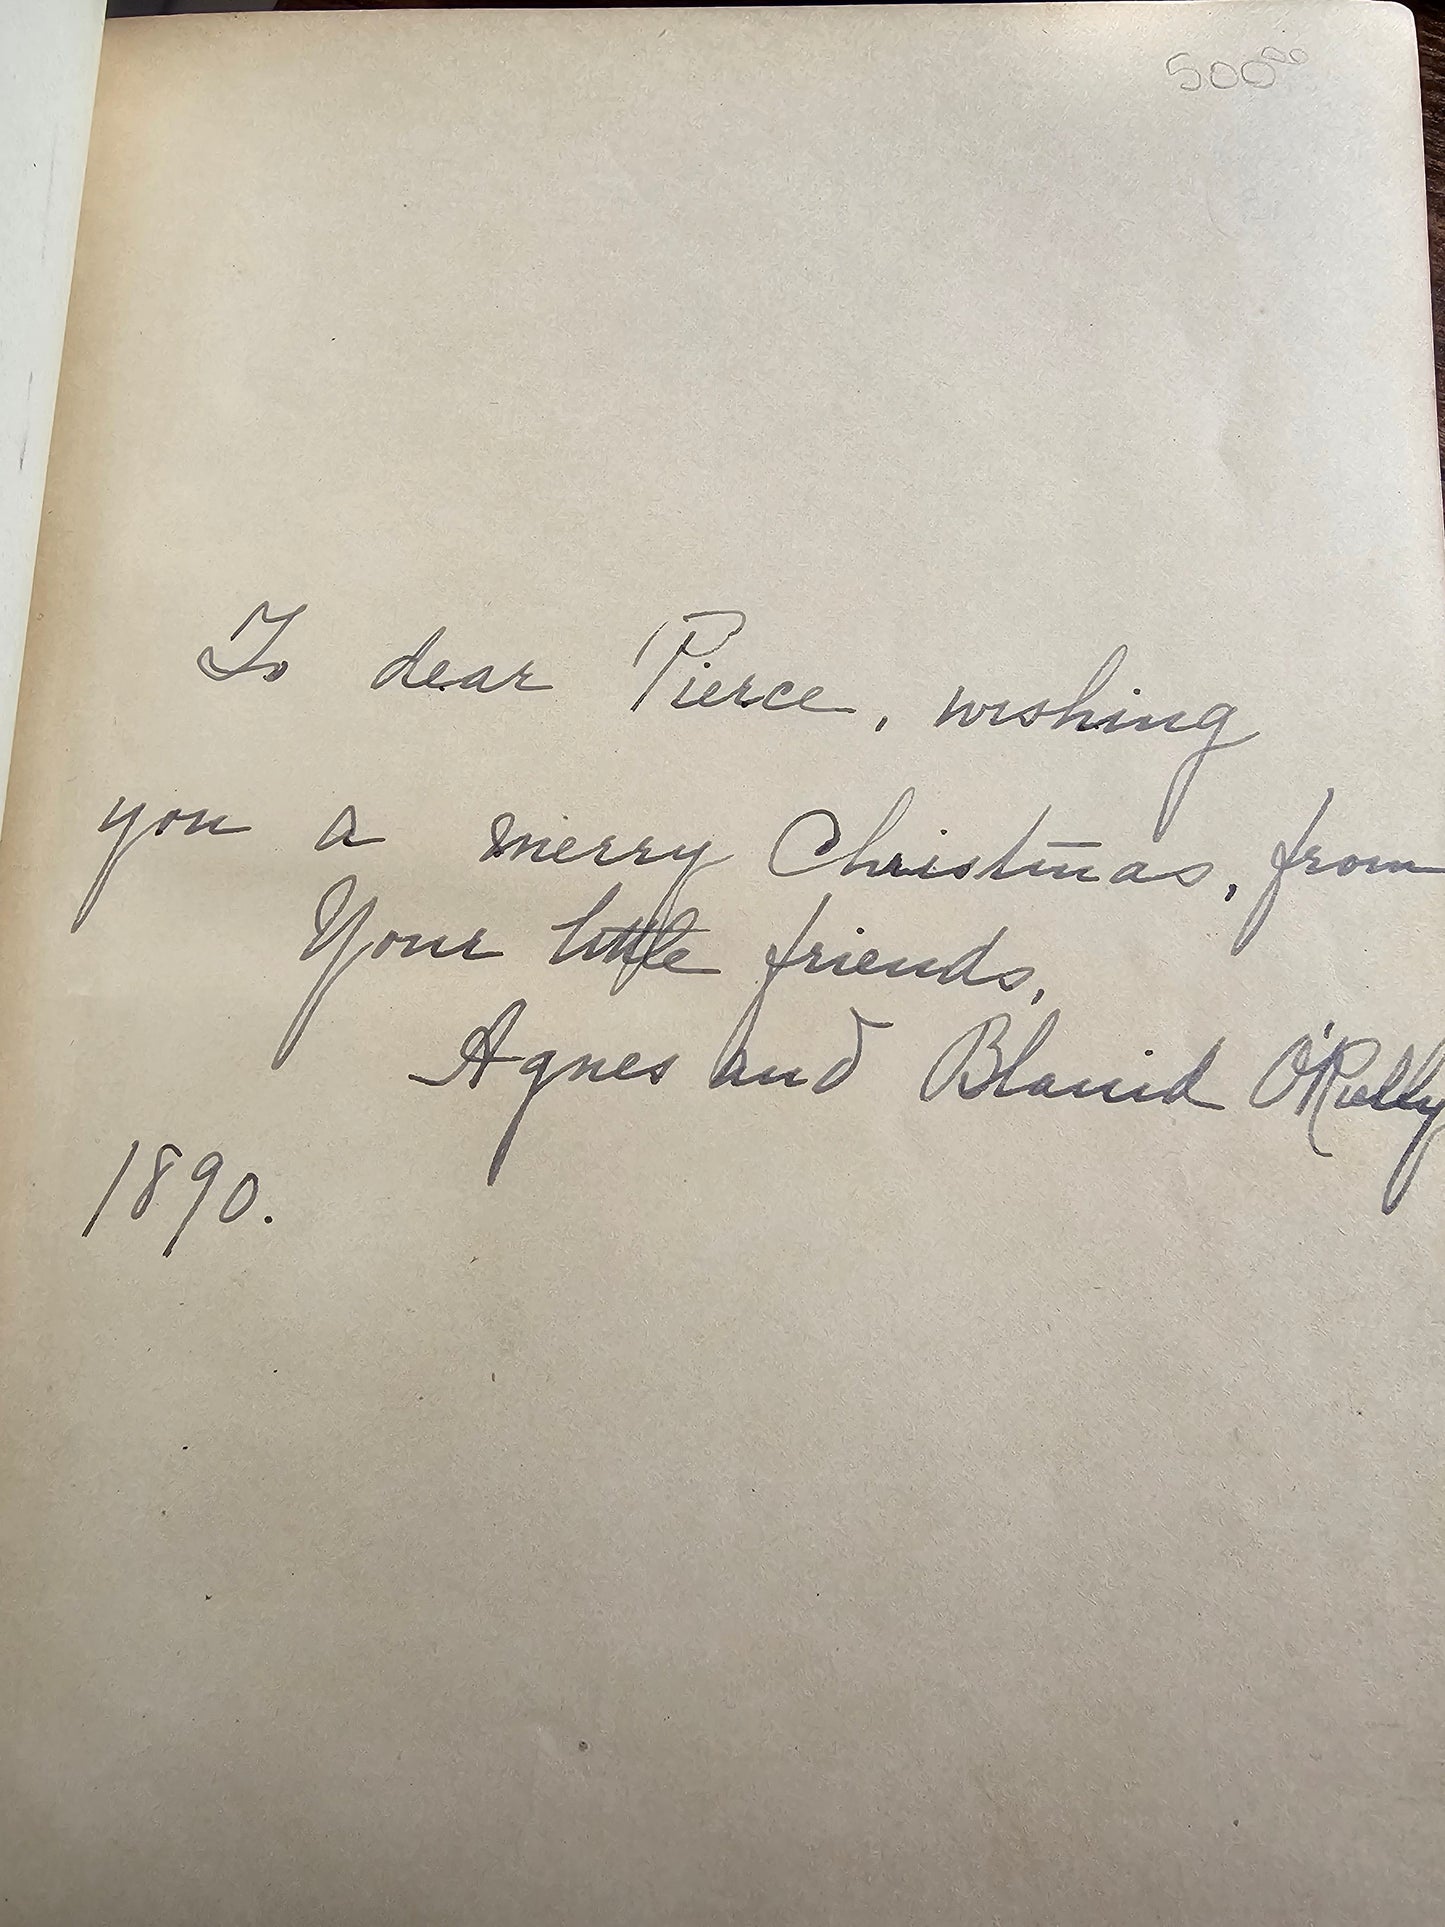 500⁰⁰
To dear Pierce, wishing
you a merry Christmas, from
Your little friends,
Agnes and Blanid O'Reilly
1890.